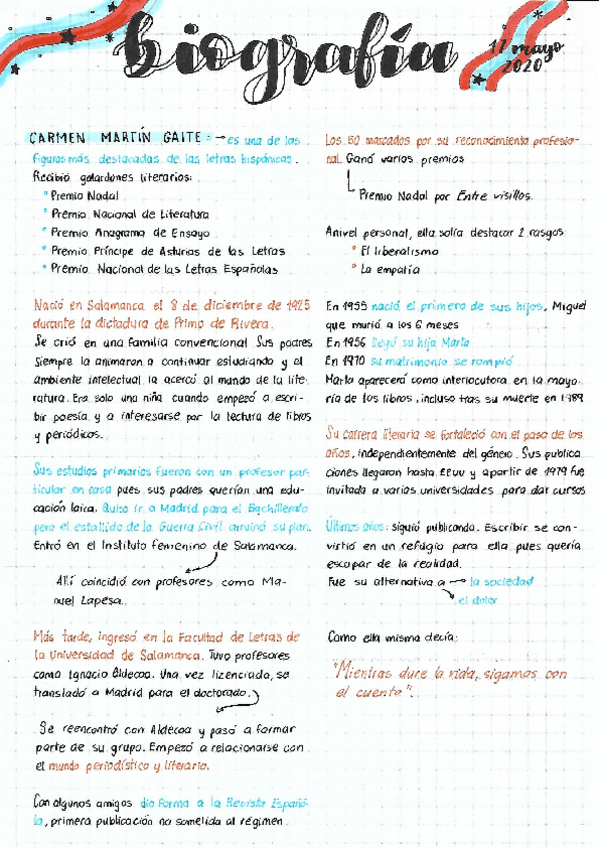 biografía
17 mayo
2020
CARMEN MARTÍN GAITE: → es una de las
figuras más destacadas de las letras hispánicas.
Recibió galardones literarios:
° Premio Nadal
° Premio Nacional de Literatura
° Premio Anagrama de Ensayo
° Premio Príncipe de Asturias de las Letras
° Premio Nacional de las Letras Españolas
Nació en Salamanca el 8 de diciembre de 1925
durante la dictadura de Primo de Rivera.
Se crió en una familia convencional. Sus padres
siempre la animaron a continuar estudiando y el
ambiente intelectual la acercó al mundo de la lite-
ratura. Era solo una niña cuando empezó a escri-
bir poesía y a interesarse por la lectura de libros
y periódicos.
Sus estudios primarios fueron con un profesor par-
ticular en casa pues sus padres querían una edu-
cación laica. Quiso ir a Madrid para el Bachillerato
pero el estallido de la Guerra Civil arruinó su plan.
Entró en el Instituto femenino de Salamanca.
Allí coincidió con profesores como Ma-
nuel Lapesa.
Más tarde, ingresó en la Facultad de Letras de
la Universidad de Salamanca. Tuvo profesores
como Ignacio Aldecoa. Una vez licenciada, se
transladó a Madrid para el doctorado.
Se reencontró con Aldecoa y pasó a formar
parte de su grupo. Empezó a relacionarse con
el mundo periodístico y literario.
Con algunos amigos dio forma a la Revista Españo-
la, primera publicación no sometida al régimen.
Los 50 marcados por su reconocimiento profesio-
nal. Ganó varios premios
Premio Nadal por Entre visillos.
A nivel personal, ella solía destacar 2 rasgos
° El liberalismo
° La empatía
En 1955 nació el primero de sus hijos, Miguel
que murió a los 6 meses
En 1956 llegó su hija, Marta
En 1970 su matrimonio se rompió
Marta aparecerá como interlocutora en la mayo-
ría de los libros, incluso tras su muerte en 1989
Su carrera literaria se fortaleció con el paso de los
años, independientemente del género. Sus publica
ciones llegaron hasta EEUU y a partir de 1979 fue
invitada a varios universidades para dar cursos
Últimos años: siguió publicando. Escribir se con-
virtió en un refugio para ella pues quería
escapar de la realidad.
Fue su alternativa a → la sociedad
el dolor
Como ella misma decía:
"Mientras dure la vida, sigamos con
el cuento".